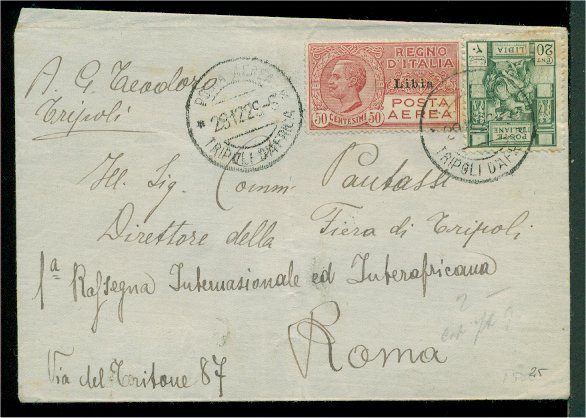 A. G. Teodoro
Tripoli
POSTA AEREA
28.12.29
TRIPOLI D'AFRICA
REGNO D'ITALIA
Libia
POSTA AEREA
50 CENTESIMI 50
20 CENT
LIBIA
POSTE ITALIANE
TRIPOLI D'AFRICA
Ill. Sig. Comm. Pautasse
Direttore della Fiera di Tripoli
1ª Rassegna Internasionale ed Interafricana
Roma
Via del Tritone 87
25